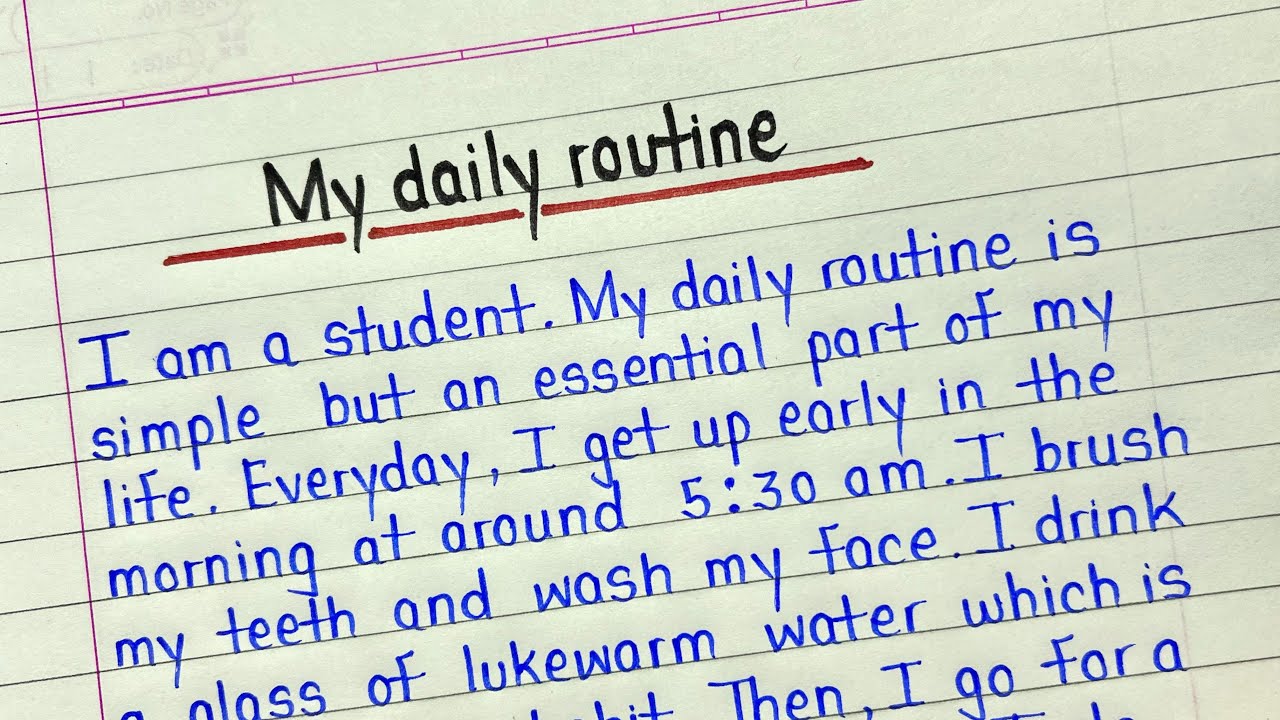 My daily routine
I am a student. My daily routine is
simple but an essential part of my
life. Everyday, I get up early in the
morning at around 5:30 am. I brush
my teeth and wash my face. I drink
a glass of lukewarm water which is
Then, I go for a